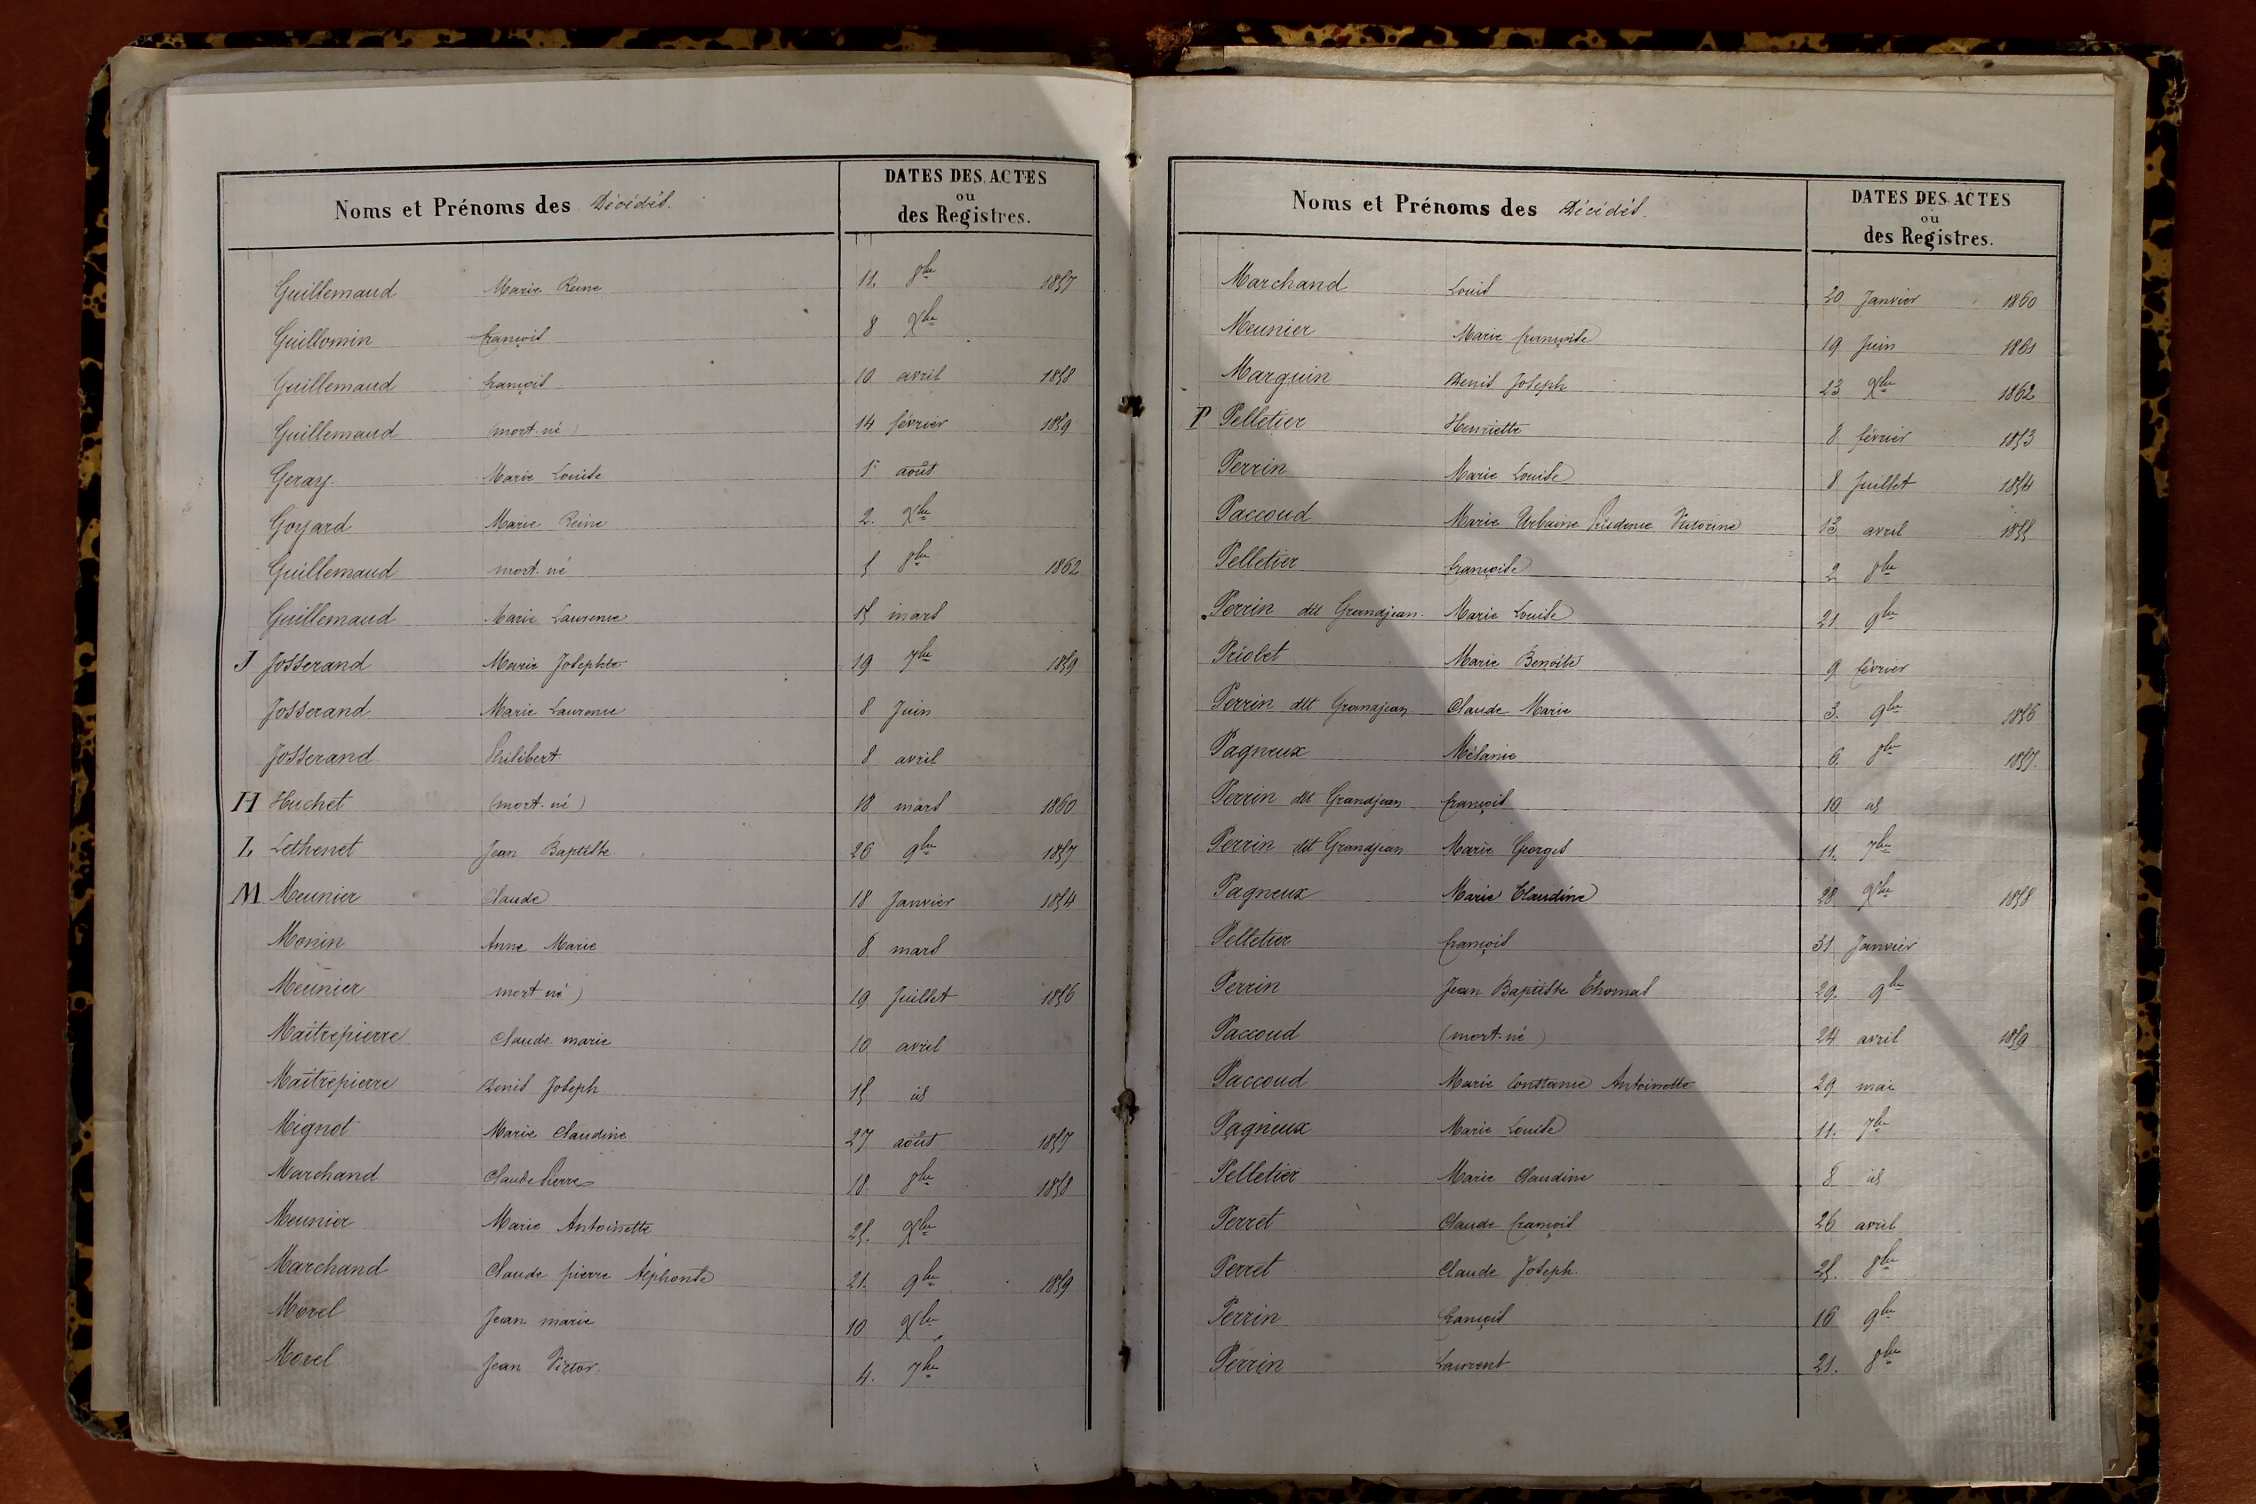 Noms et Prénoms des Décédés.
DATES DES ACTES
ou
des Registres.
Guillemaud Marie Reine 11. 8bre 1857
Guillomin François 8 Xbre
Guillemaud François 10 avril 1858
Guillemaud (mort-né) 14 février 1859
Geray Marie Louise 1er août
Goyard Marie Reine 2. Xbre
Guillemaud mort-né 5 8bre 1862
Guillemaud Marie Laurence 15 mars
J Josserand Marie Josephte 19 7bre 1859
Josserand Marie Laurence 8 Juin
Josserand Philibert 8 avril
H Huchet (mort-né) 18 mars 1860
L Lethenet Jean Baptiste 26 9bre 1857
M Meunier Claude 18 Janvier 1854
Monin Anne Marie 8 mars
Meunier mort né) 19 Juillet 1856
Maitrepierre Claude marie 10 avril
Maitrepierre Denis Joseph 15 id
Mignot Marie Claudine 27 août 1857
Marchand Claude Pierre 18 8bre 1858
Meunier Marie Antoinette 25. Xbre
Marchand Claude pierre Alphonse 21. 9bre 1859
Morel Jean marie 10 Xbre
Morel Jean Victor. 4. 7bre
Noms et Prénoms des Décédés.
DATES DES ACTES
ou
des Registres.
Marchand Louis 20 Janvier 1860
Meunier Marie Françoise 19 Juin 1861
Marguin Denis Joseph 23 Xbre 1862
P Pelletier Henriette 8 février 1853
Perrin Marie Louise 8 Juillet 1854
Paccoud Marie Urbaine Prudence Victorine 13 avril 1855
Pelletier Françoise 2 8bre
Perrin dit Grandjean Marie Louise 21. 9bre
Priolet Marie Benoîte 9 février
Perrin dit Grandjean Claude Marie 3. 9bre 1856
Pagneux Mélanie 6. 8bre 1857.
Perrin dit Grandjean François 10 id
Perrin dit Grandjean Marie Georges 11. 7bre
Pagneux Marie Claudine 28 Xbre 1858
Pelletier François 31 Janvier
Perrin Jean Baptiste Thomas 29. 9bre
Paccoud (mort-né) 24 avril 1859
Paccoud Marie Constance Antoinette 29 mai
Pagneux Marie Louise 11. 7bre
Pelletier Marie Claudine 8 id
Perret Claude François 26 avril
Perret Claude Joseph. 25. 8bre
Perrin François 16 9bre
Perrin Laurent 21. 8bre